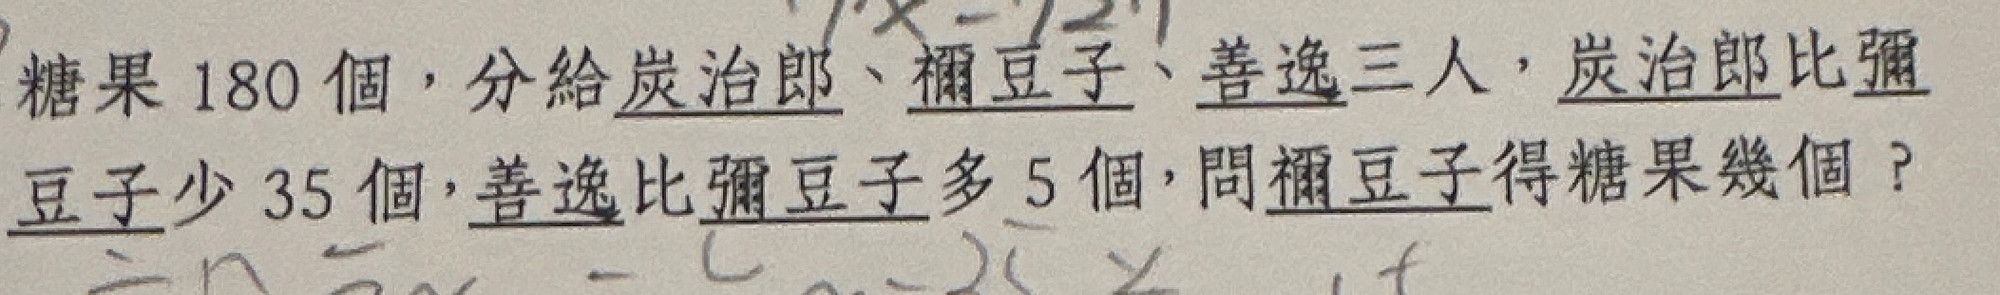 糖果 180 個，分給炭治郎、禰豆子、善逸三人，炭治郎比彌
豆子少 35 個，善逸比彌豆子多 5 個，問禰豆子得糖果幾個？